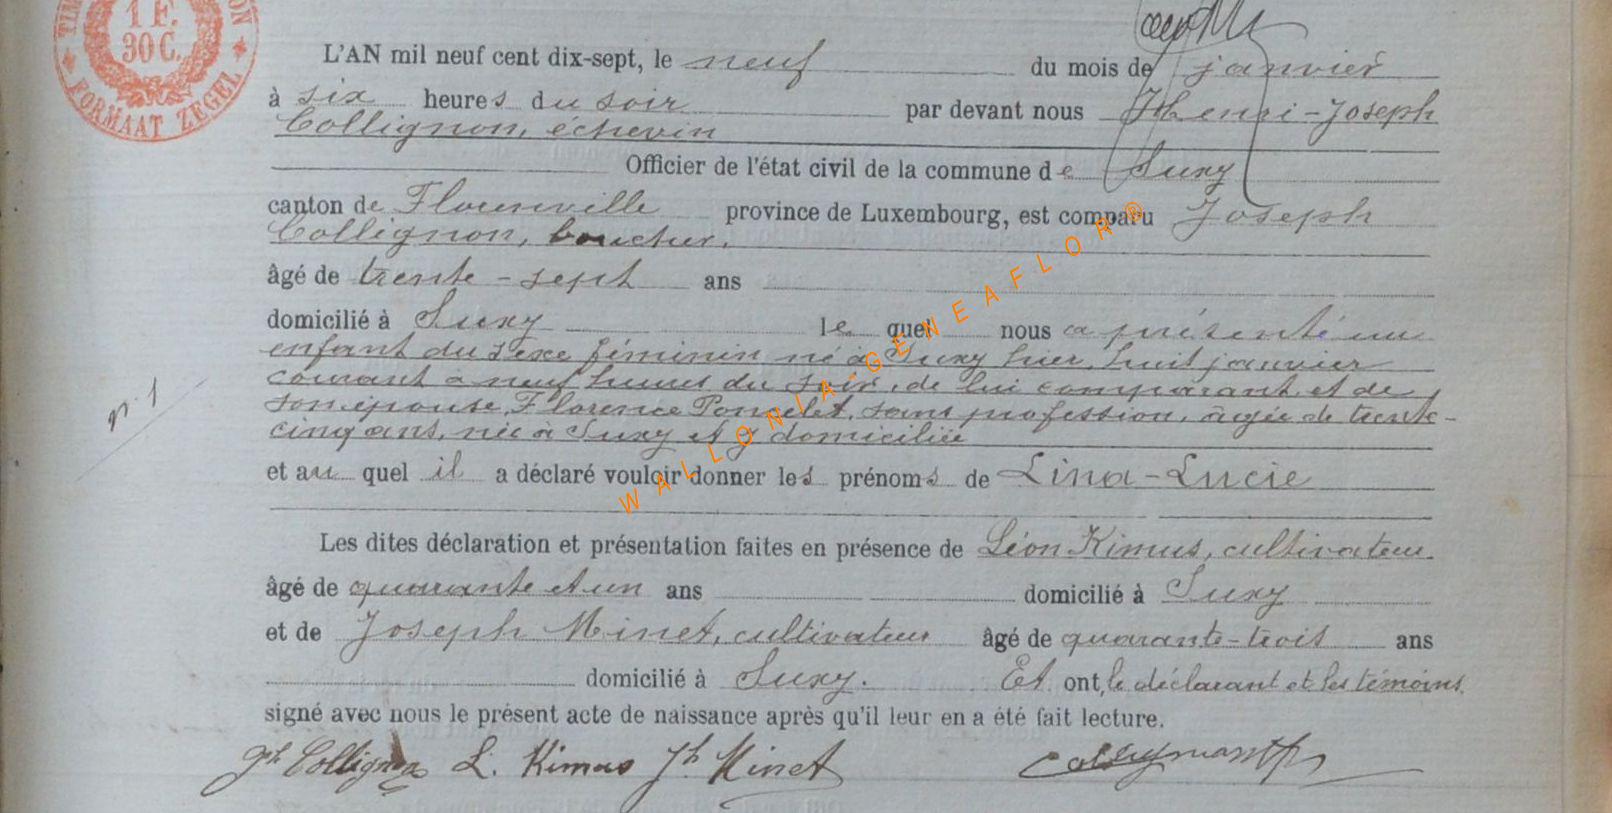 1 F.
30 C.
FORMAAT ZEGEL
L'AN mil neuf cent dix-sept, le neuf du mois de janvier
à six heures du soir par devant nous Henri-Joseph
Collignon, échevin
Officier de l'état civil de la commune de Suxy
canton de Florenville province de Luxembourg, est comparu Joseph
Collignon, boucher,
âgé de trente-sept ans
domicilié à Suxy lequel nous a présenté un
enfant du sexe féminin né à Suxy hier, huit janvier
courant à neuf heures du soir, de lui comparant et de
son épouse, Florence Poncelet, sans profession, âgée de trente-
cinq ans, née à Suxy et y domiciliée
nr. 1
et au quel il a déclaré vouloir donner les prénoms de Lina-Lucie
Les dites déclaration et présentation faites en présence de Léon Kimus, cultivateur
âgé de quarante et un ans domicilié à Suxy
et de Joseph Minet, cultivateur âgé de quarante-trois ans
domicilié à Suxy. Et ont, le déclarant et les témoins,
signé avec nous le présent acte de naissance après qu'il leur en a été fait lecture.
Jh Collignon L. Kimus Jh Minet
WALLONIA-GENEAFLOR®